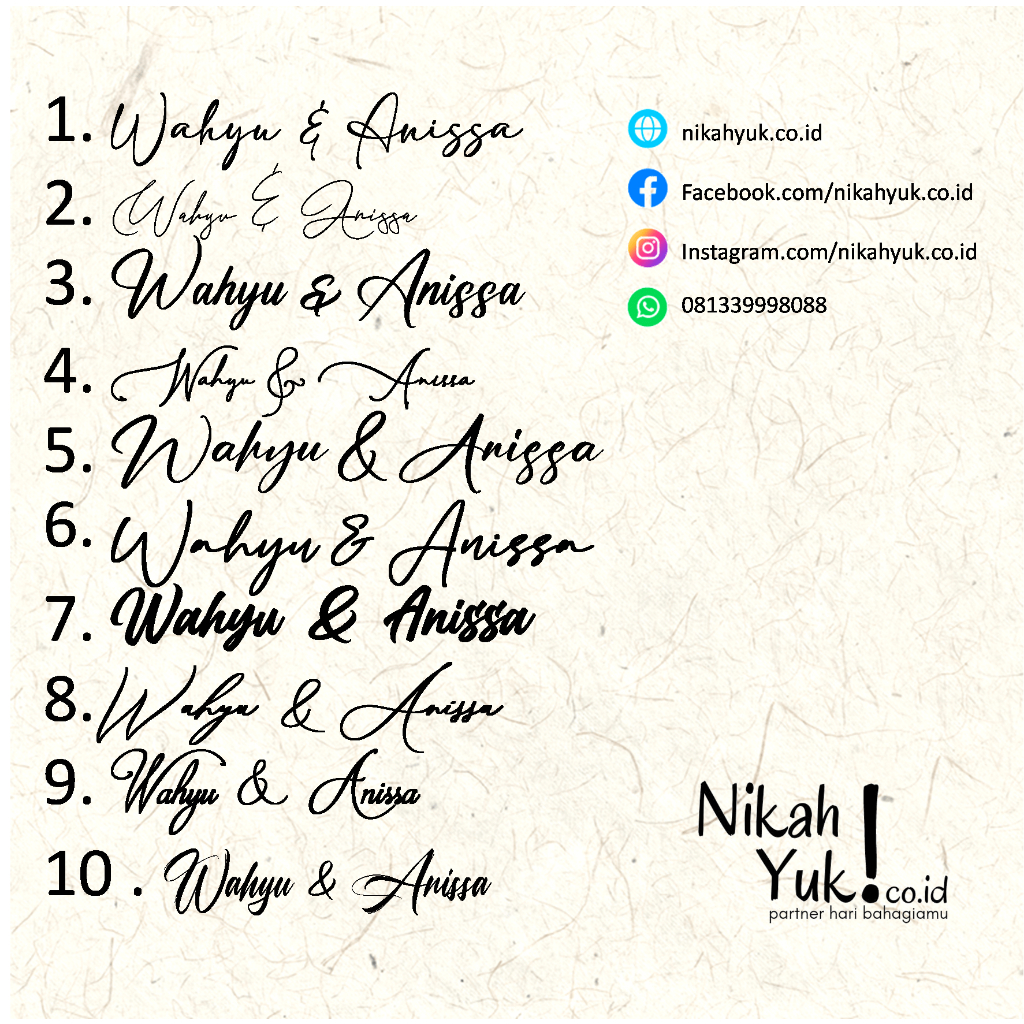 1. Wahyu & Anissa
2. Wahyu & Anissa
3. Wahyu & Anissa
4. Wahyu & Anissa
5. Wahyu & Anissa
6. Wahyu & Anissa
7. Wahyu & Anissa
8. Wahyu & Anissa
9. Wahyu & Anissa
10 . Wahyu & Anissa
nikahyuk.co.id
Facebook.com/nikahyuk.co.id
Instagram.com/nikahyuk.co.id
081339998088
Nikah
Yuk!.co.id
partner hari bahagiamu